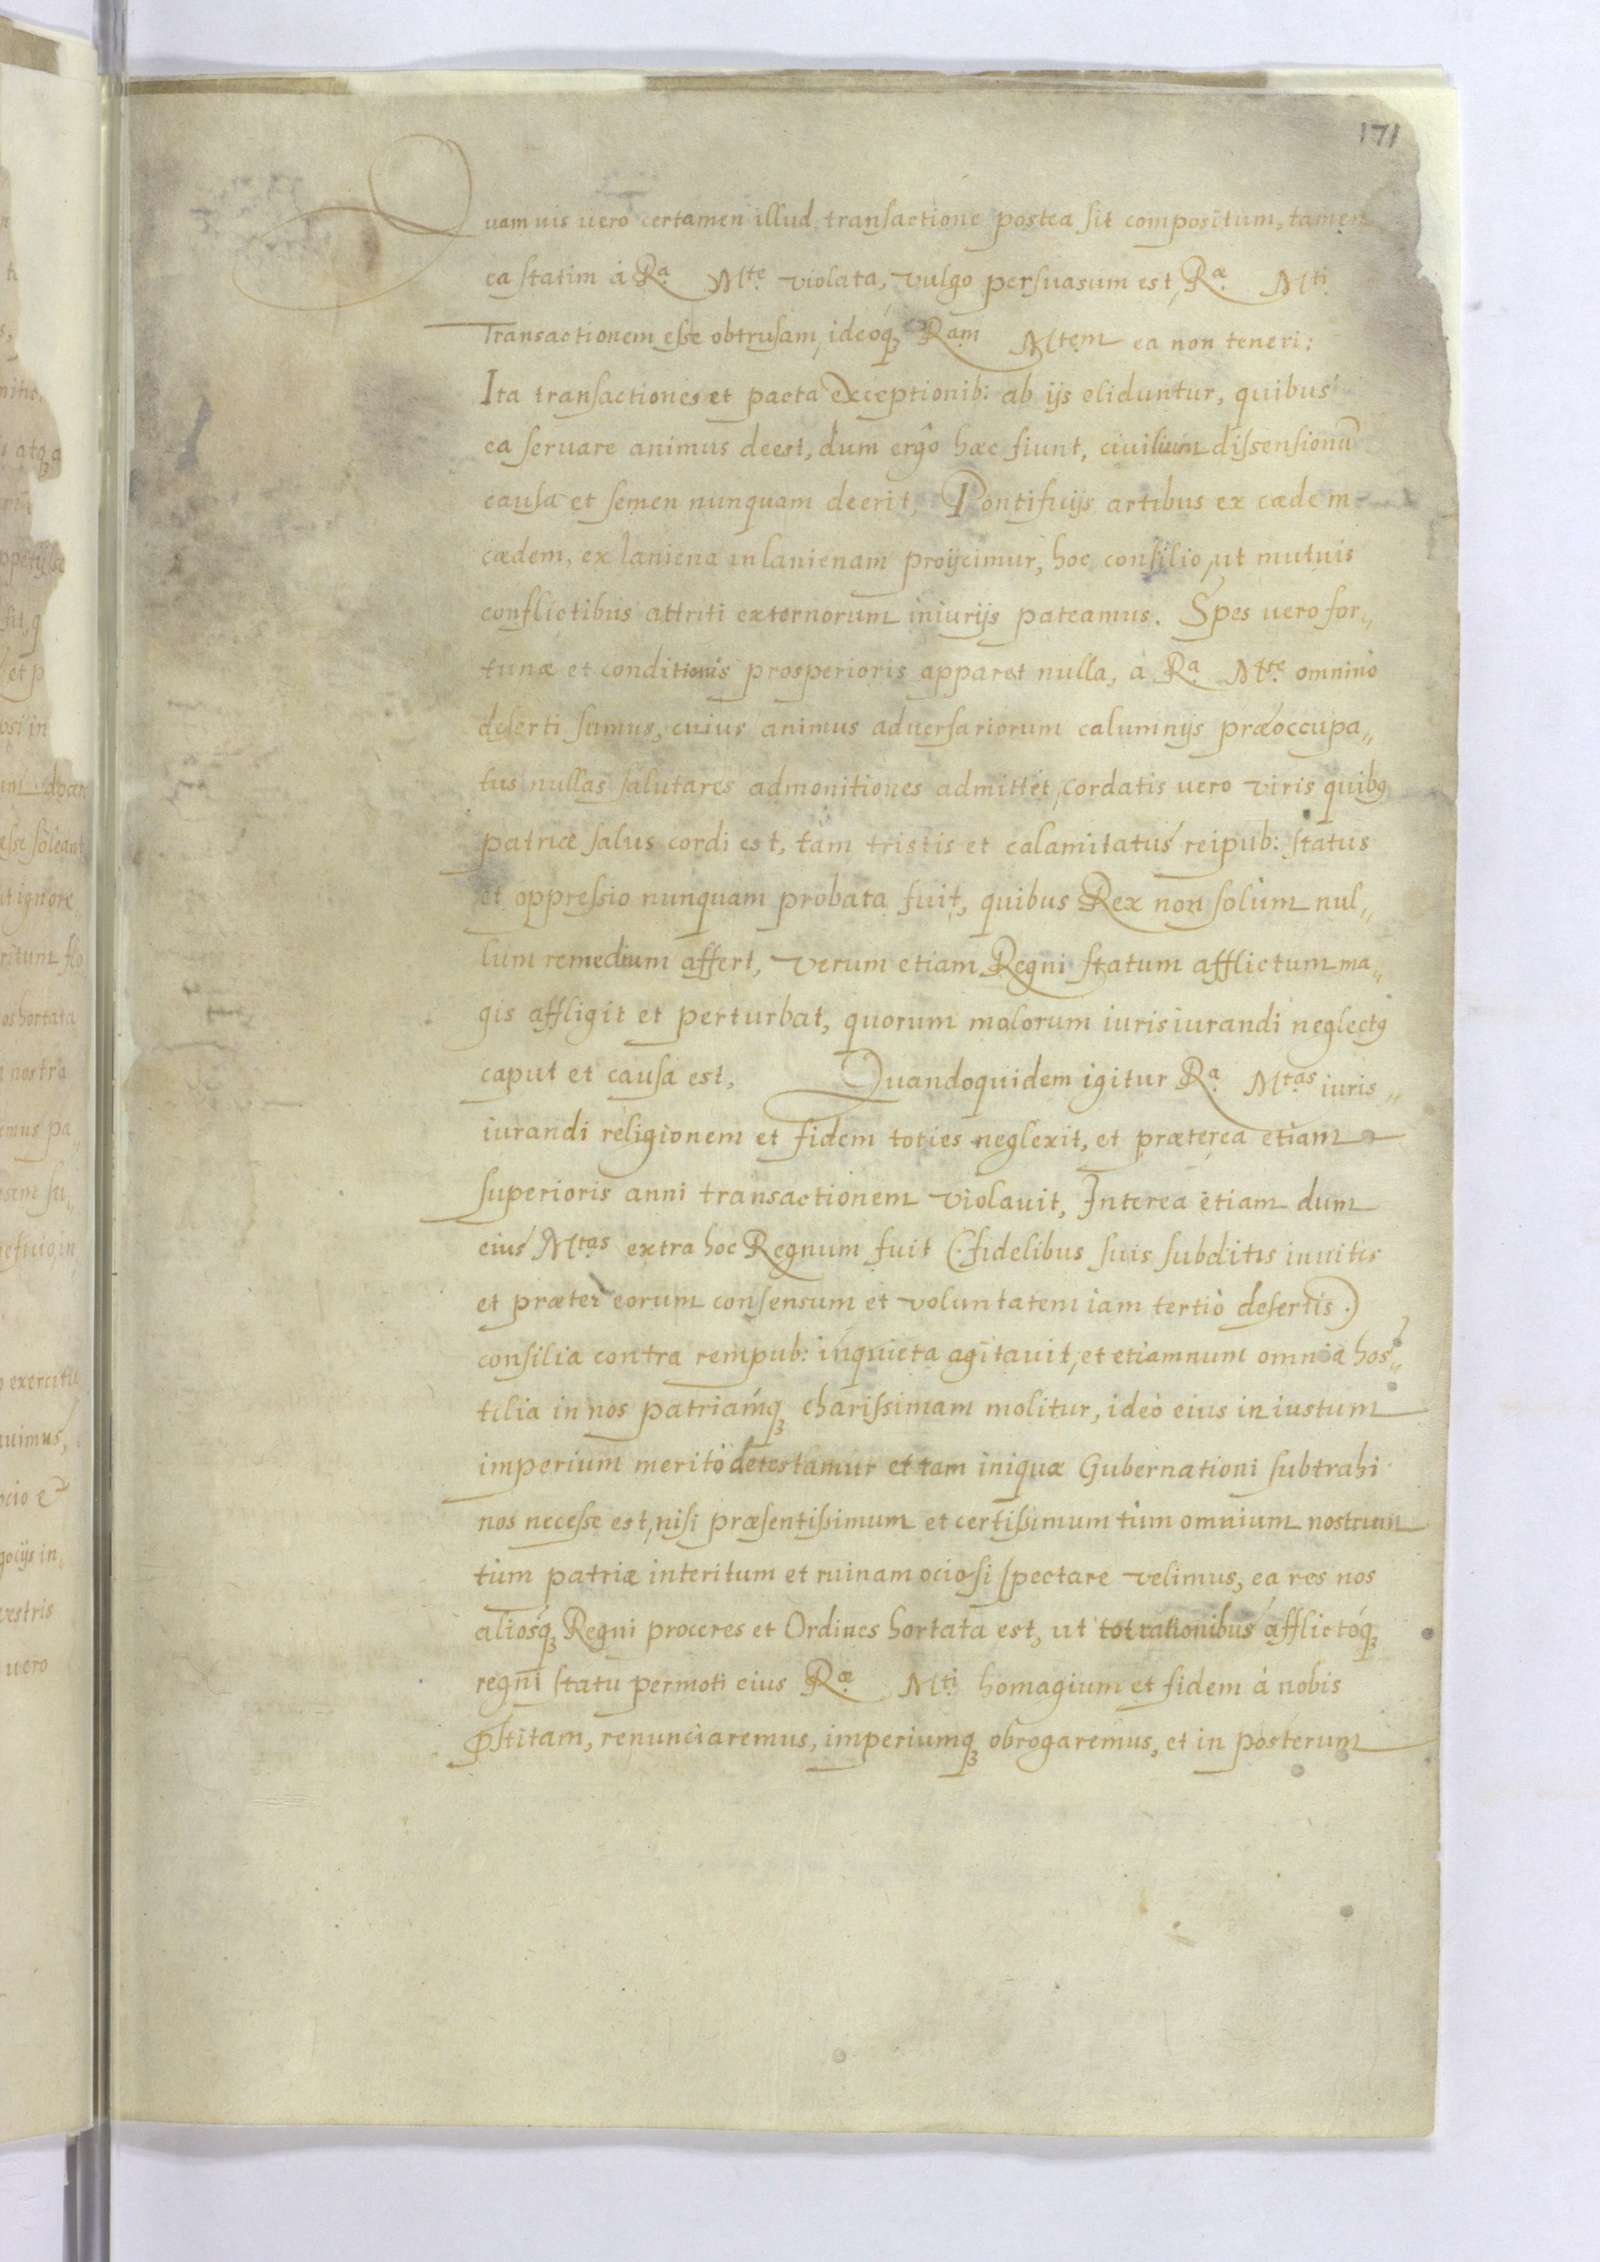 171
Quamuis uero certamen illud transactione postea sit compositum, tamen
ea statim à Ra. Mte. violata, vulgo persuasum est, Ræ Mti
Transactionem esse obtrusam, ideoq3 Ram Mtem ea non teneri:
Ita transactiones et pacta exceptionib: ab ijs eliduntur, quibus
ea seruare animus deest, dum ergò hæc fiunt, ciuilium dissensionū
causa et semen nunquam deerit, Pontificijs artibus ex cæde in
cædem, ex laniena in lanienam proijcimur, hoc consilio, ut mutuis
conflictibus attriti externorum iniurijs pateamus. Spes uero for,,
tunæ et conditionis prosperioris apparet nulla, à Ra. Mte. omnino
deserti sumus, cuius animus aduersariorum calumnijs præoccupa,,
tus nullas salutares admonitiones admittet, cordatis uero viris quibꝯ
patriæ salus cordi est, tam tristis et calamitatus reipub: status
et oppressio nunquam probata fuit, quibus Rex non solum nul,,
lum remedium affert, verum etiam Regni statum afflictum ma,,
gis affligit et perturbat, quorum malorum iurisiurandi neglectꝯ
caput et causa est, Quandoquidem igitur Ra. Mtas iuris,,
iurandi religionem et fidem toties neglexit, et præterea etiam
superioris anni transactionem violauit, Interea etiam dum
eius Mtas extra hoc Regnum fuit (: fidelibus suis subditis inuitis
et præter eorum consensum et voluntatem iam tertiò desertis .)
consilia contra rempub: inquieta agitauit, et etiamnum omnia hos,,
tilia in nos patriamq3 charissimam molitur, ideò eius iniustum
imperium meritò detestamur et tam iniquæ Gubernationi subtrahi
nos necesse est, nisi præsentissimum et certissimum tùm omnium nostrum
tùm patriæ interitum et ruinam ociosi spectare velimus, ea res nos
aliosq3 Regni proceres et Ordines hortata est, ut tot rationibus afflictóq3
regni statu permoti eius Ræ Mti homagium et fidem à nobis
p̃stitam, renunciaremus, imperiumq3 obrogaremus, et in posterum